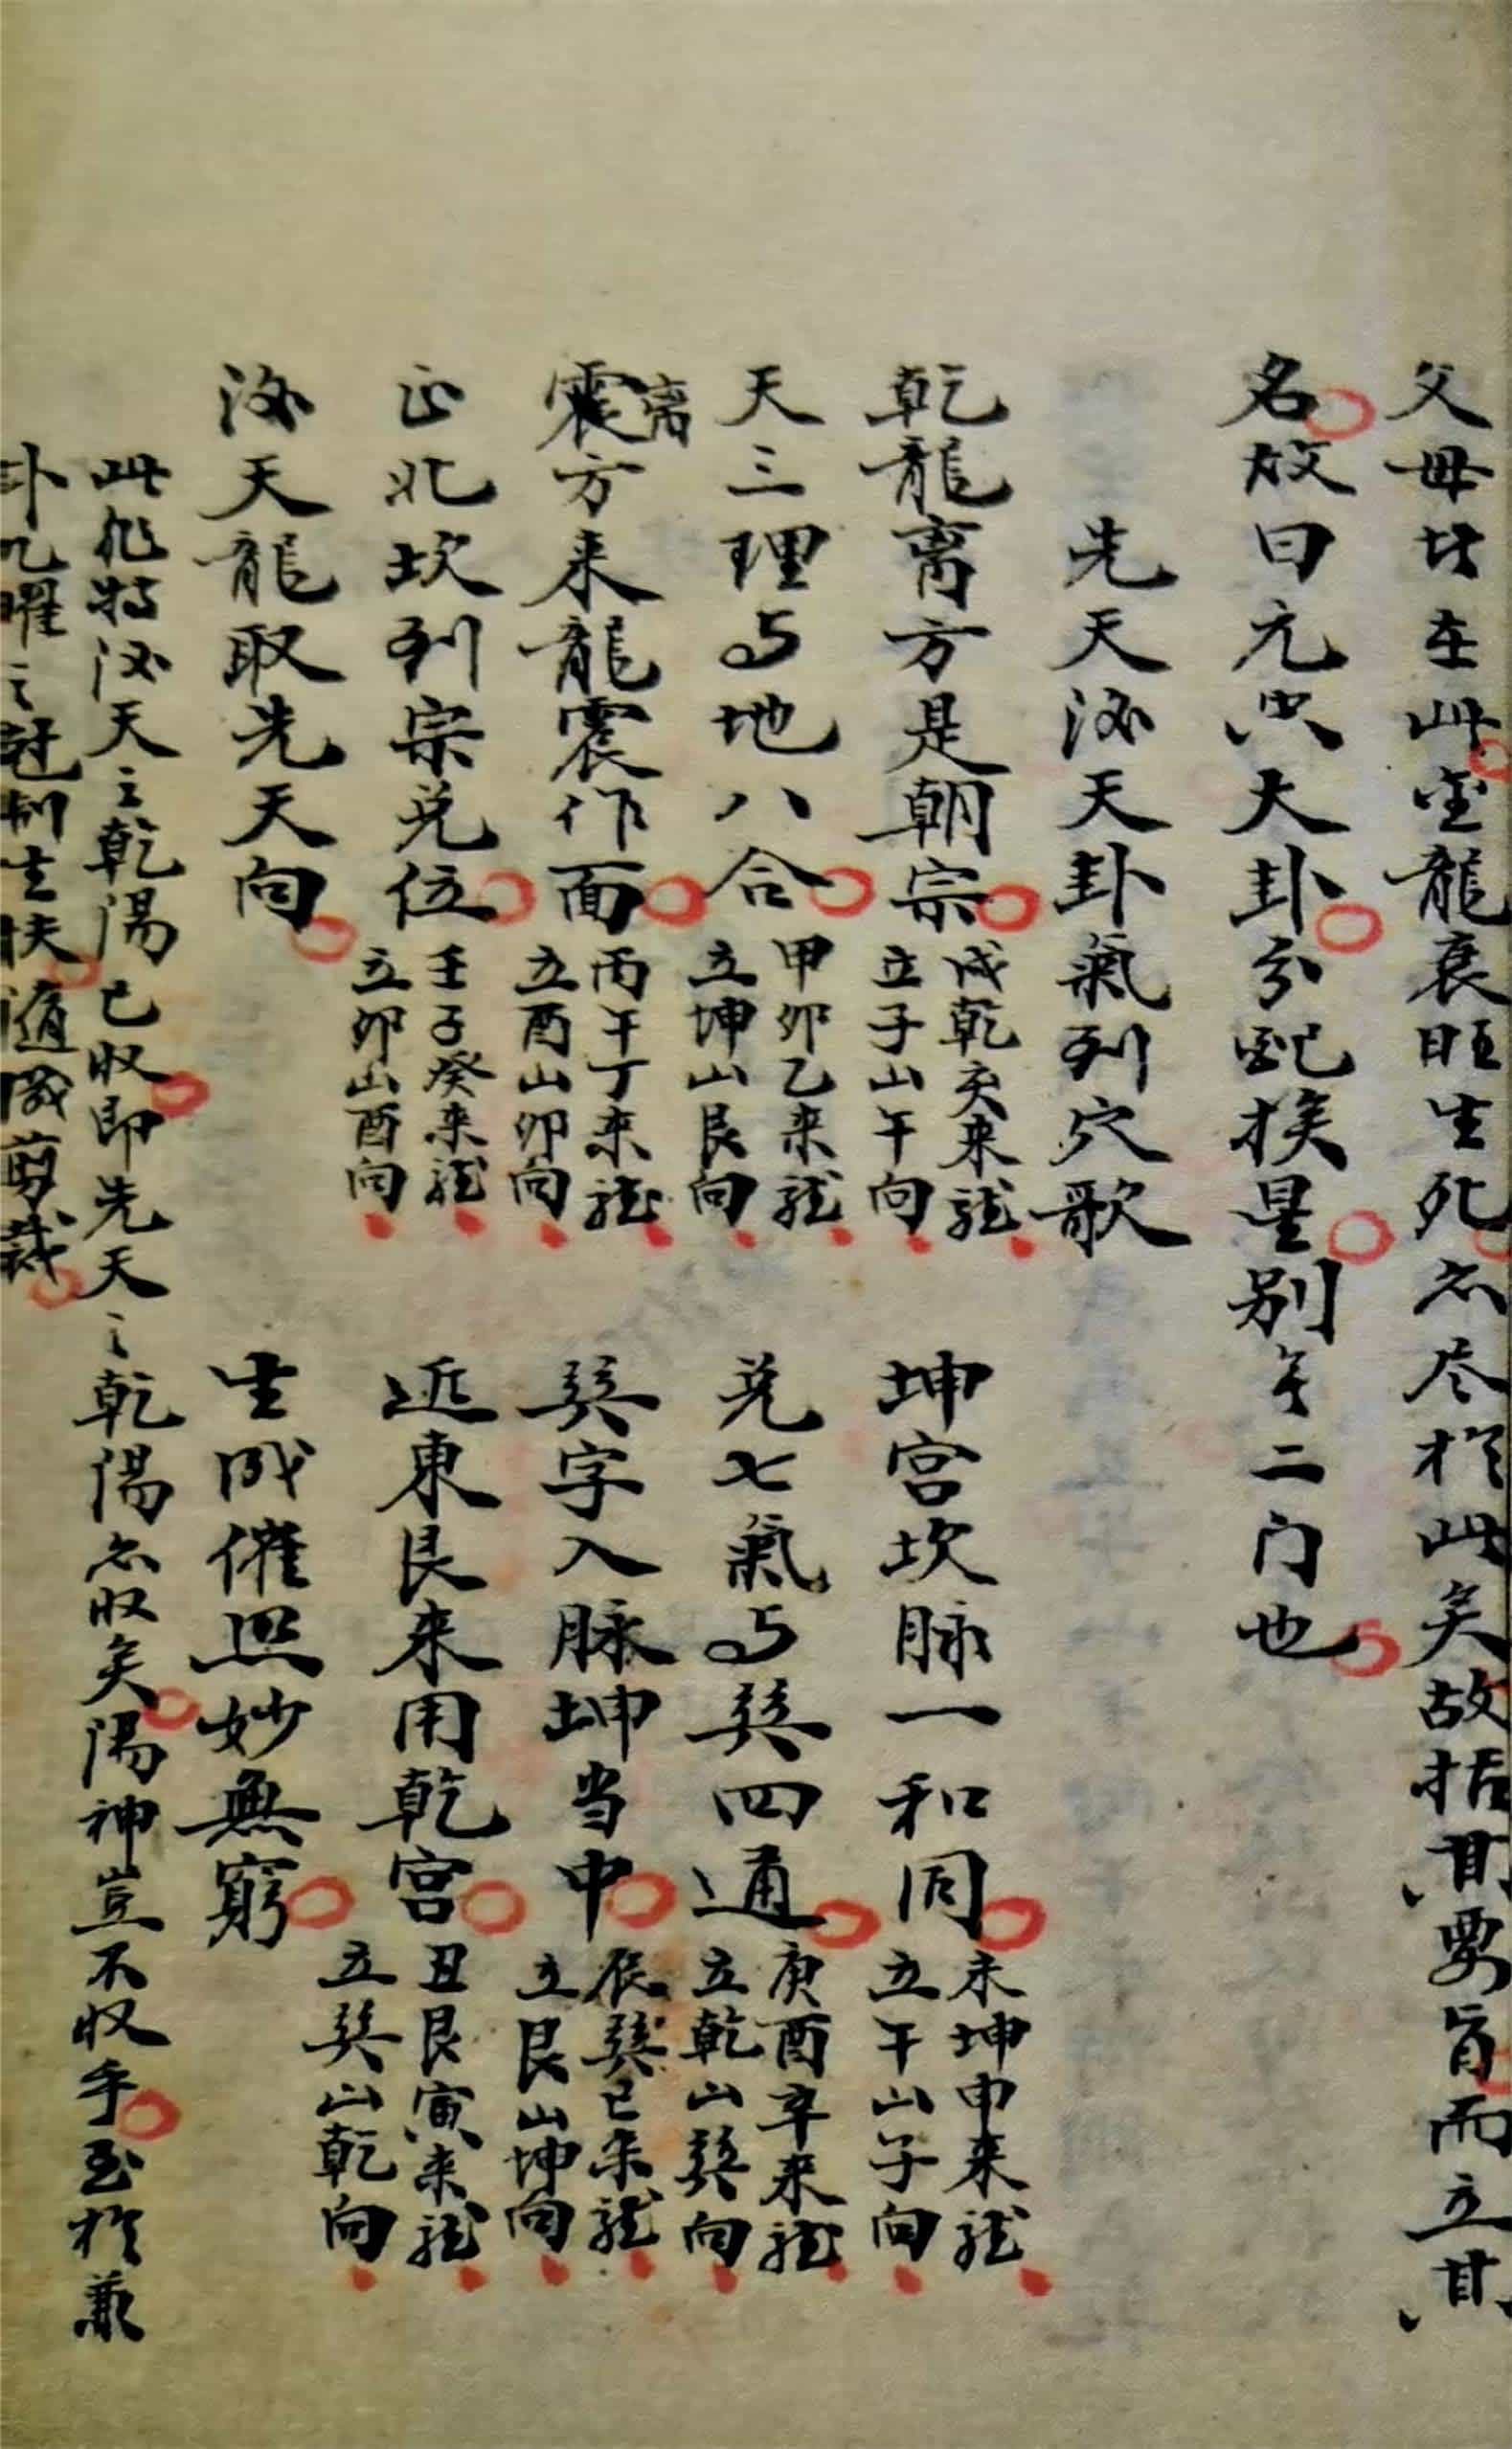 父母皆在此空龍衰旺生死亦尽於此矣故括其要旨而立其
名故曰元空大卦分配挨星别无二门也
先天後天卦氣列穴歌
乾龍离方是朝宗 戌乾亥来龍 立子山午向
坤宫坎脉一和同 未坤申来龍 立午山子向
天三理与地八合 甲卯乙来龍 立坤山艮向
兑七氣与巽四通 庚酉辛来龍 立乾山巽向
震离方来龍震作面 丙午丁来龍 立酉山卯向
巽字入脉坤当中 辰巽巳来龍 立艮山坤向
正北坎列宗兑位 壬子癸来龍 立卯山酉向
近東艮来用乾宫 丑艮寅来龍 立巽山乾向
後天龍取先天向
生成催照妙無窮
此非特後天之乾陽已收即先天之乾陽亦收矣陽神豈不收乎至於兼
卦九曜之尅制生扶随成剪裁